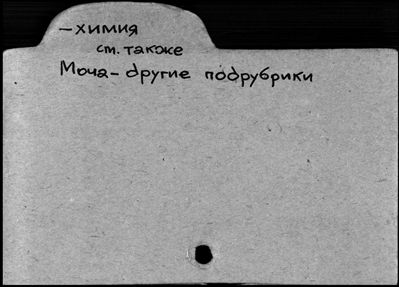 – химия
см. также
Моча – другие подрубрики